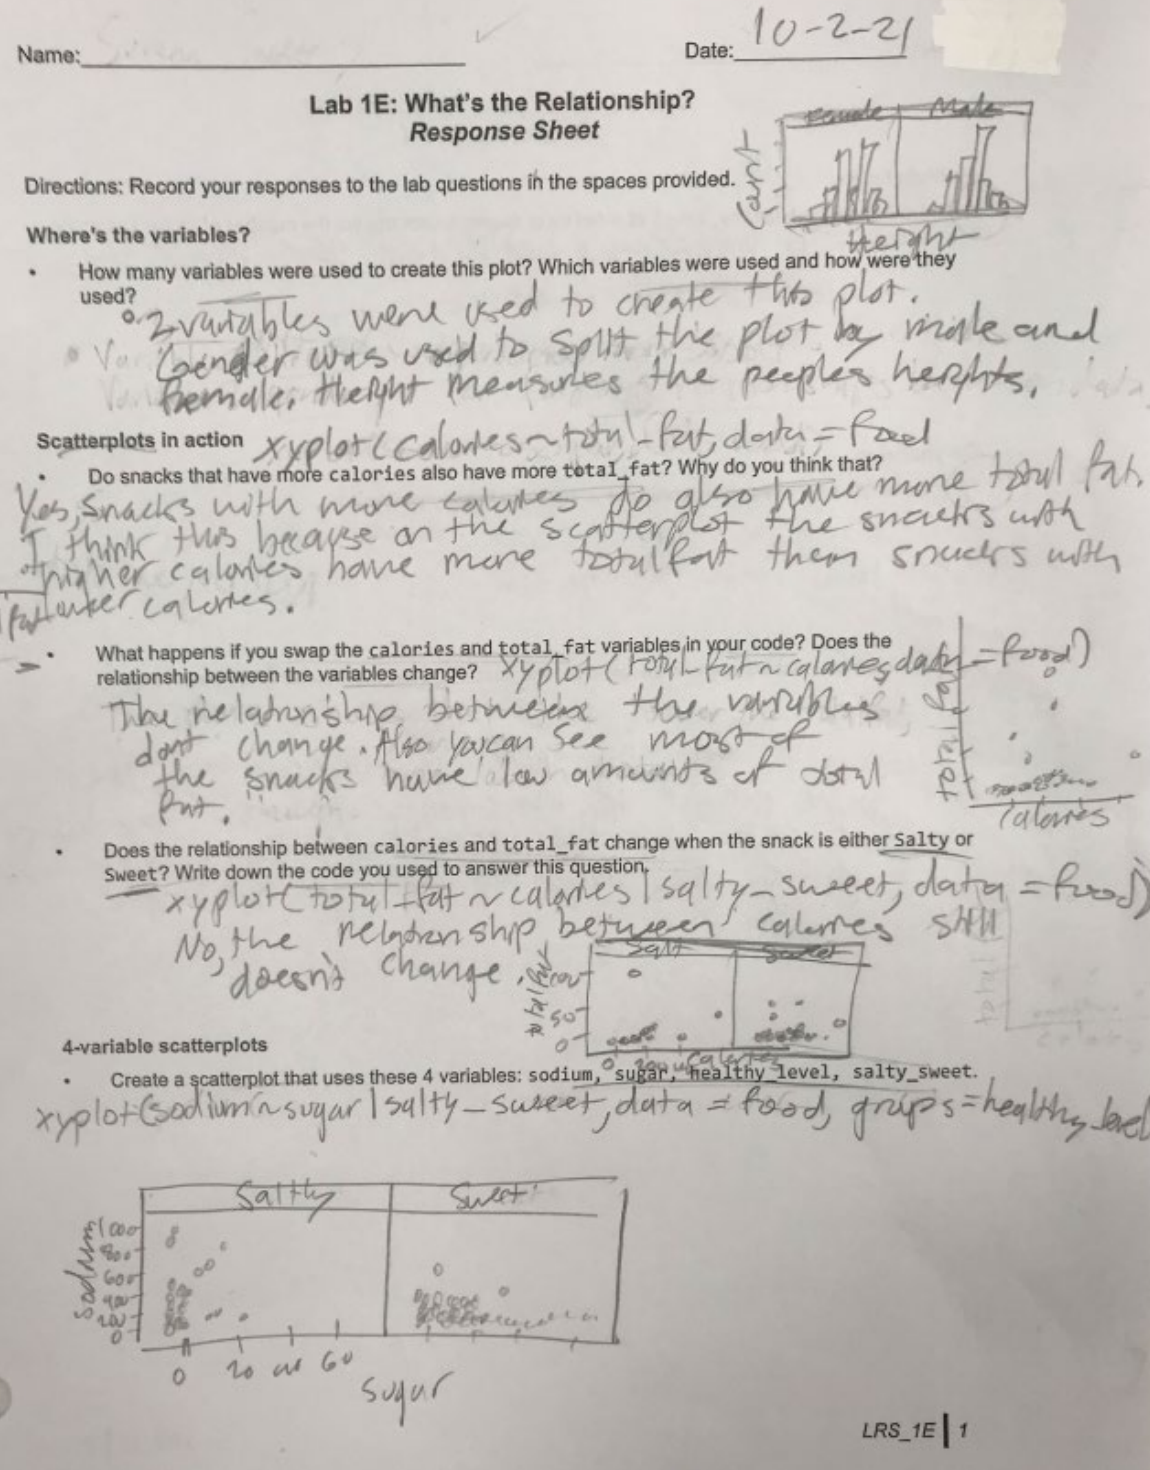 Name:
Date: 10-2-21
Lab 1E: What's the Relationship?
Response Sheet
Female Male
Count
Height
Directions: Record your responses to the lab questions in the spaces provided.
Where's the variables?
• How many variables were used to create this plot? Which variables were used and how were they
used?
2 variables were used to create this plot.
Gender was used to split the plot by male and
female. Height measures the peoples heights.
Scatterplots in action xyplot(calories~total_fat, data=food
• Do snacks that have more calories also have more total_fat? Why do you think that?
Yes, Snacks with more calories do also have more total fat.
I think this because on the scatterplot the snacks with
higher calories have more total fat them snacks with
calories.
• What happens if you swap the calories and total_fat variables in your code? Does the
relationship between the variables change? xyplot(total_fat~calories, data=food)
The relationship between the variables
dont change. Also you can see most of
the snacks have low amounts of total
fat.
total fat
calories
• Does the relationship between calories and total_fat change when the snack is either Salty or
Sweet? Write down the code you used to answer this question.
xyplot(total_fat~calories|salty_sweet, data=food)
No, the relationship between calories still
doesn't change.
Salt Sweet
total fat
50
0
0
calories
4-variable scatterplots
• Create a scatterplot that uses these 4 variables: sodium, sugar, healthy_level, salty_sweet.
xyplot(sodium~sugar|salty_sweet, data=food, grups=healthy_level
Saltly Sweet
sodium
1000
800
600
400
200
0
0 20 40 60
sugar
LRS_1E | 1